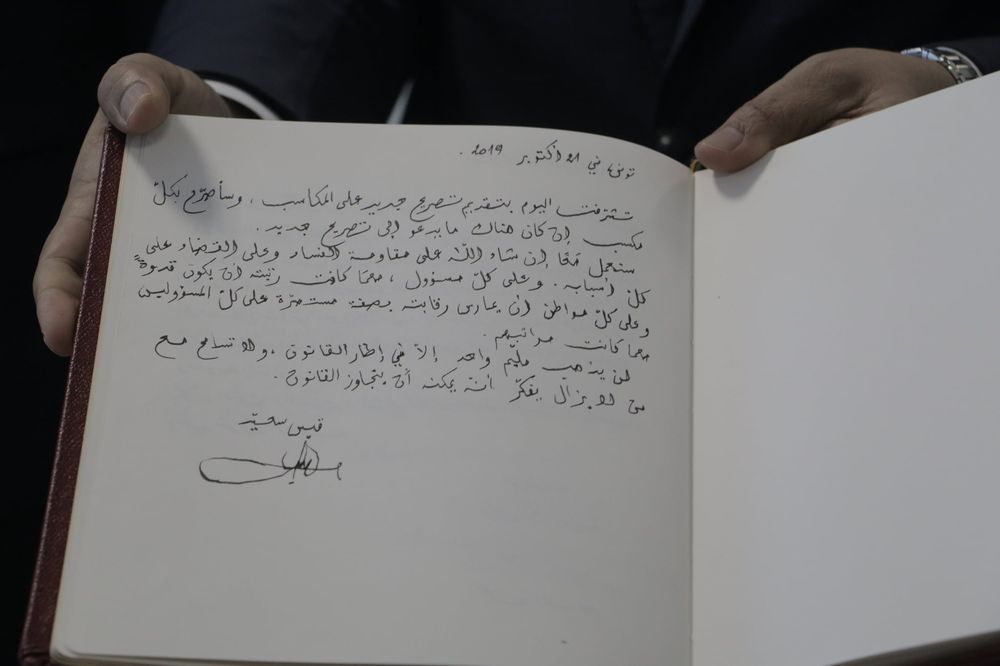 تونس في 21 أكتوبر 2019.
تشرّفت اليوم بتقديم تصريح جديد على المكاسب، وسأصرّح بكلّ
مكسب إن كان هناك ما يدعو إلى تصريح جديد.
سنعمل معًا إن شاء اللّه على مقاومة الفساد وعلى القضاء على
كلّ أسبابه. وعلى كلّ مسؤول، مهما كانت رتبته أن يكون قدوة
وعلى كلّ مواطن أن يمارس رقابته بصفة مستمرّة على كلّ المسؤولين
مهما كانت مراتبهم.
لن يذهب ملّيم واحد إلاّ في إطار القانون، ولا تسامح مع
من لا يزال يفكّر أنّه يمكنه أن يتجاوز القانون.
قيس سعيّد